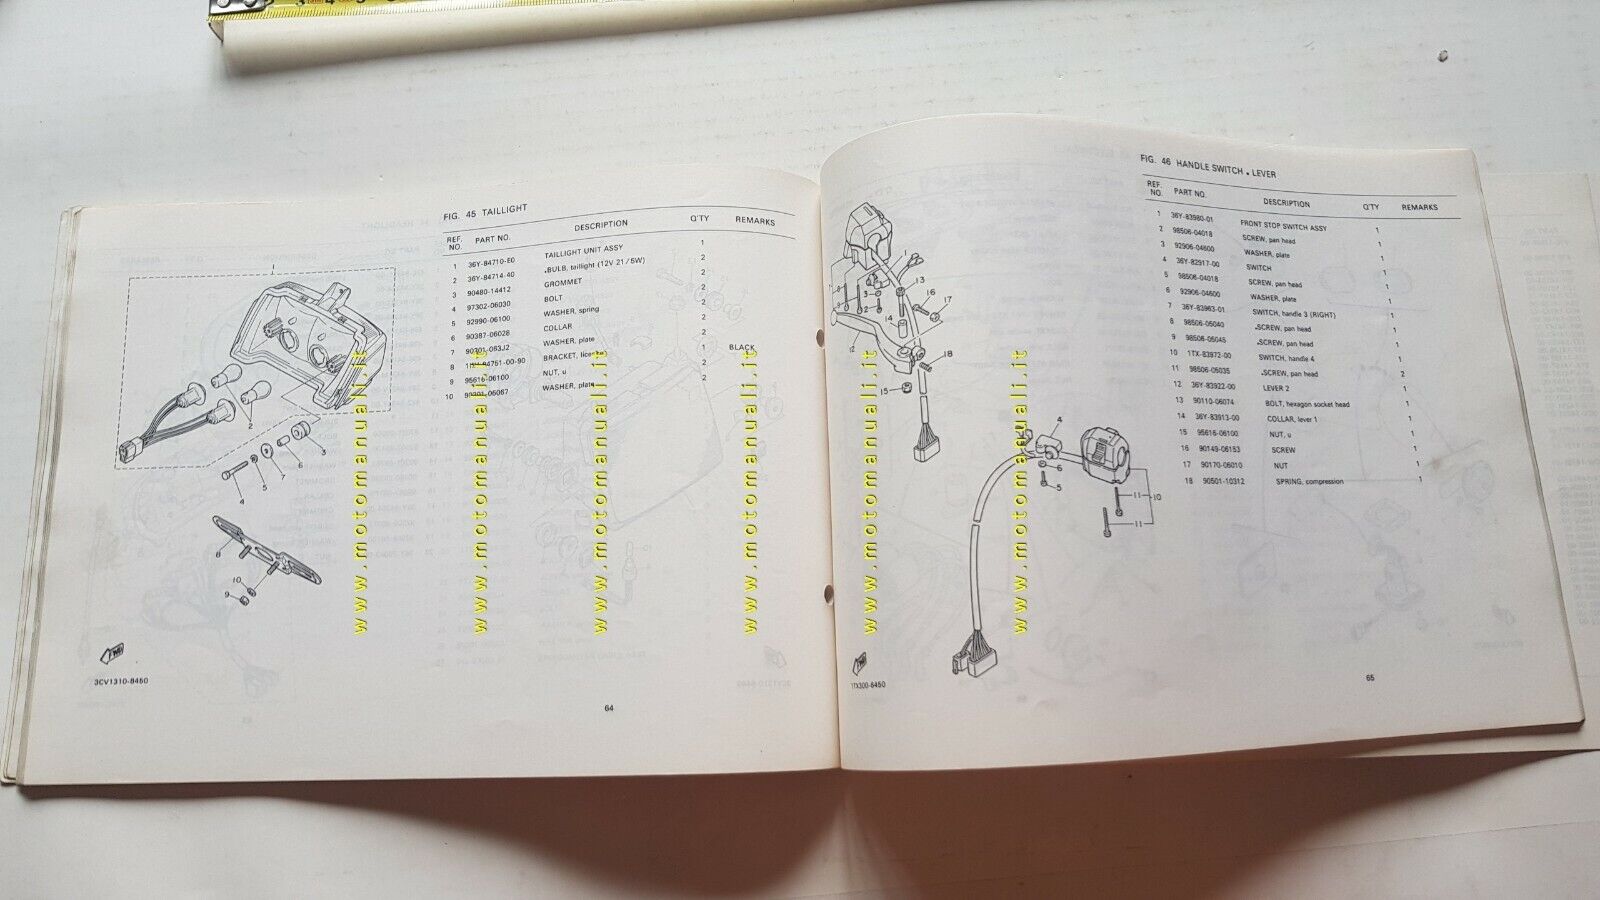 FIG. 45 TAILLIGHT
REF. NO. PART NO. DESCRIPTION Q'TY REMARKS
1 36Y-84710-E0 TAILLIGHT UNIT ASSY 1
2 36Y-84714-40 .BULB, taillight (12V 21/5W) 2
3 90480-14412 GROMMET 2
4 97302-06030 BOLT 2
5 92990-06100 WASHER, spring 2
6 90387-06028 COLLAR 2
7 90201-063J2 WASHER, plate 2
8 BRACKET, license 1 BLACK
9 95616-06100 NUT, u 2
10 90201-06067 WASHER, plate 2
1
2
3
6
7
5
4
8
10
9
3CV1310-8450
64
FIG. 46 HANDLE SWITCH . LEVER
REF. NO. PART NO. DESCRIPTION Q'TY REMARKS
1 36Y-83980-01 FRONT STOP SWITCH ASSY 1
2 98506-04018 SCREW, pan head 1
3 92906-04600 WASHER, plate 1
4 36Y-82917-00 SWITCH 1
5 98506-04018 SCREW, pan head 1
6 92906-04600 WASHER, plate 1
7 36Y-83963-01 SWITCH, handle 3 (RIGHT) 1
8 98506-05040 .SCREW, pan head 1
9 98506-05045 .SCREW, pan head 1
10 1TX-83972-00 SWITCH, handle 4 1
11 98506-05035 .SCREW, pan head 2
12 36Y-83922-00 LEVER 2 1
13 90110-06074 BOLT, hexagon socket head 1
14 36Y-83913-00 COLLAR, lever 1 1
15 95616-06100 NUT, u 1
16 90149-06153 SCREW 1
17 90170-06010 NUT 1
18 90501-10312 SPRING, compression 1
1
13
16
17
3
2
14
12
18
15
4
6
5
11
10
11
1TX300-8450
65
www.motomanuali.it
www.motomanuali.it
www.motomanuali.it
www.motomanuali.it
www.motomanuali.it
www.motomanuali.it